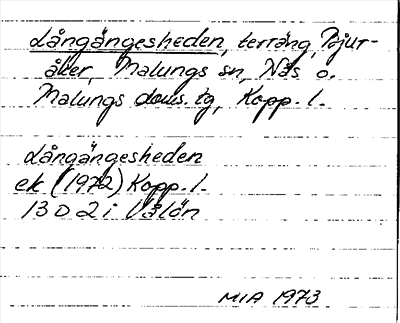 Långängesheden, terräng, Bjur-
åker, Malungs sn, Nås o.
Malungs doms. tg, Kopp. l.
Långängesheden
ek (1972) Kopp. l.
13 D 2 i V
MIA 1973